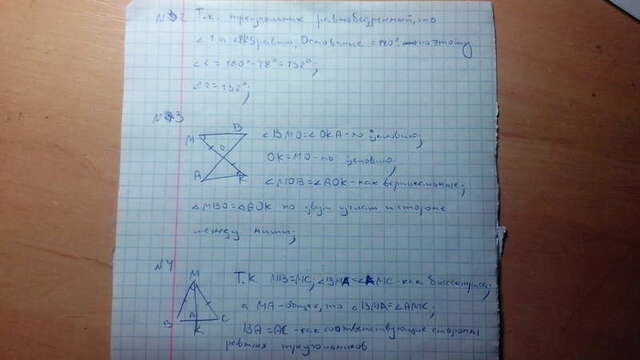 №2 Т.к. треугольник равнобедренный, то
∠1 и равны. Основание = 180° поэтому
∠2 = 180° - 28° = 152°;
∠2 = 152°;
№3
M B O A K
∠BMO = ∠OKA - по условию;
OK = MO - по условию;
∠MOB = ∠AOK - как вертикальные;
∠MBO = ∠AOK по двум углам и стороне
между ними;
№4
M B A C K
Т.к MB = MC, ∠BMA = ∠AMC - как биссектриса;
а MA - общая, то ∠BMA = ∠AMC,
BA = AC - как соответствующие стороны
равных треугольников